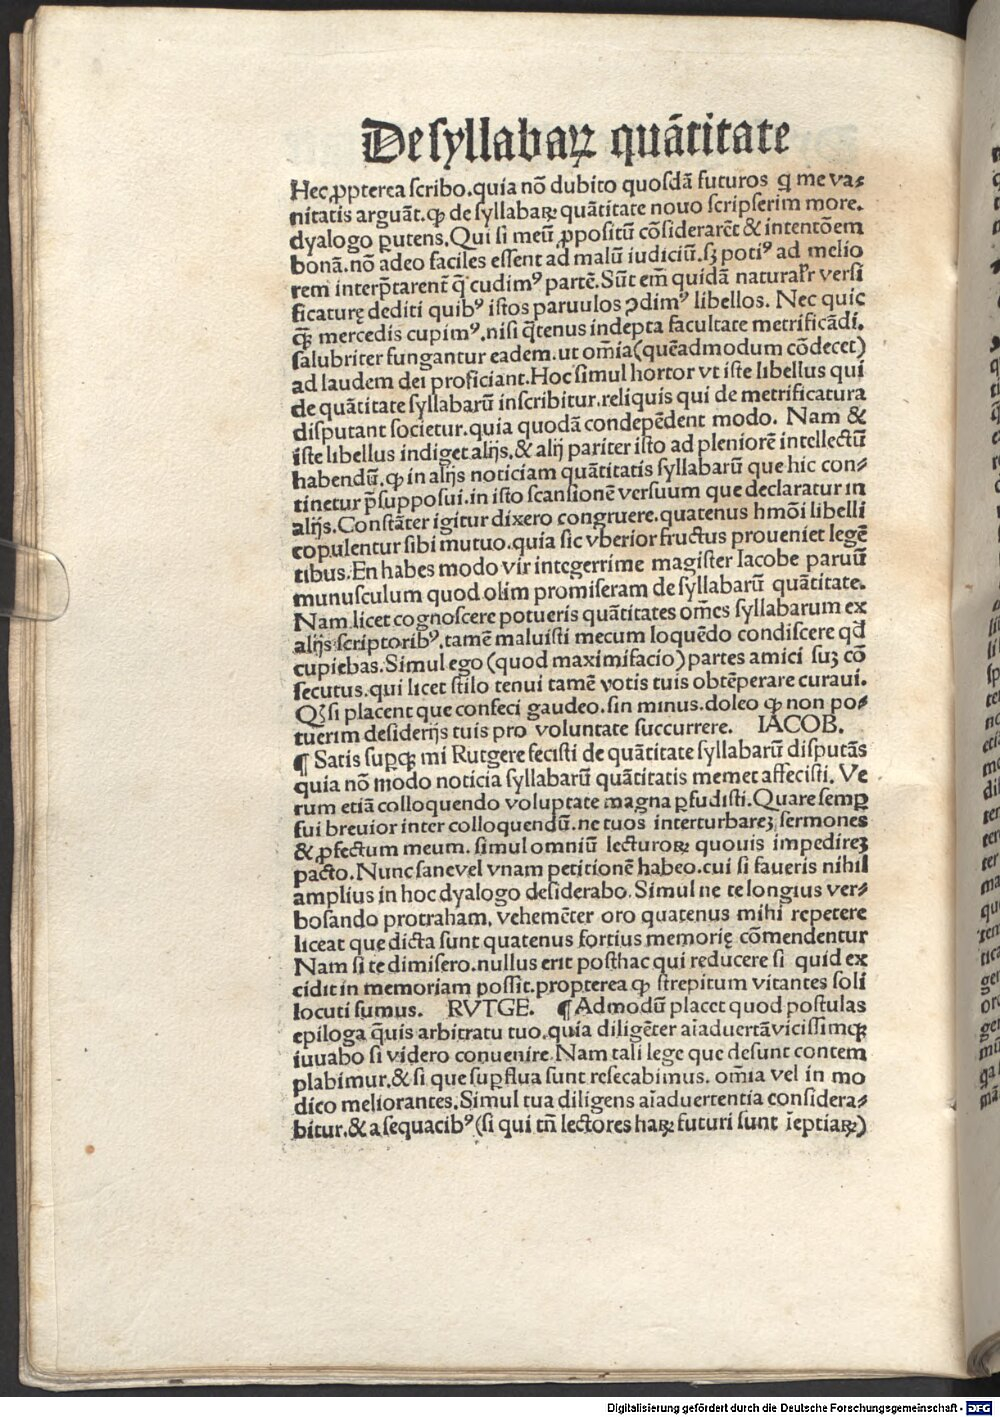 De syllabaꝝ quãtitate
Hec ꝓpterea scribo.quia nõ dubito quosdã futuros q me va⸗
nitatis arguãt.ꝙ de syllabaꝝ quãtitate nouo scripserim more.
dyalogo putens.Qui si meũ ꝓpositũ cõsiderarẽt & intentõem
bonã.nõ adeo faciles essent ad malũ iudiciũ.sꝫ potiꝰ ad melio
rem interp̃tarent q̃ cudimꝰ partẽ.Sũt em̃ quidã naturalr̃ versi
ficaturę dediti quibꝰ istos paruulos ꝯdimꝰ libellos. Nec quic
q̃ꝫ mercedis cupimꝰ.nisi q̃tenus indepta facultate metrificãdi.
salubriter fungantur eadem.ut om̃ia(quẽadmodum cõdecet)
ad laudem dei proficiant.Hoc simul hortor vt iste libellus qui
de quãtitate syllabarũ inscribitur.reliquis qui de metrificatura
disputant societur.quia quodã condepẽdent modo. Nam &
iste libellus indiget alijs.& alij pariter isto ad pleniorẽ intellectũ
habendũ.ꝙ in alijs noticiam quãtitatis syllabarũ que hic con⸗
tinetur p̃supposui.in isto scansionẽ versuum que declaratur in
alijs.Constãter igitur dixero congruere.quatenus hmõi libelli
copulentur sibi mutuo.quia sic vberior fructus proueniet legẽ
tibus.En habes modo vir integerrime magister Iacobe paruũ
munusculum quod olim promiseram de syllabarũ quãtitate.
Nam licet cognoscere potueris quãtitates om̃es syllabarum ex
alijs scriptoribꝰ.tamẽ maluisti mecum loquẽdo condiscere qd̃
cupiebas.Simul ego (quod maximifacio) partes amici suꝫ cõ
secutus.qui licet stilo tenui tamẽ votis tuis obtẽperare curaui.
Qꝫ si placent que confeci gaudeo.sin minus.doleo ꝙ non po⸗
tuerim desiderijs tuis pro voluntate succurrere. IACOB.
¶ Satis suꝑqꝫ mi Rutgere fecisti de quãtitate syllabarũ disputãs
quia nõ modo noticia syllabarũ quãtitatis memet affecisti. Ve
rum etiã colloquendo voluptate magna ꝑfudisti.Quare semꝑ
fui breuior inter colloquendũ.ne tuos interturbareꝫ sermones
& ꝓfectum meum. simul omniũ lecturoꝝ quouis impedireꝫ
pacto.Nunc sane vel vnam petitionẽ habeo.cui si faueris nihil
amplius in hoc dyalogo desiderabo.Simul ne te longius ver⸗
bosando protraham, vehemẽter oro quatenus mihi repetere
liceat que dicta sunt quatenus fortius memorię cõmendentur
Nam si te dimisero.nullus erit posthac qui reducere si quid ex
cidit in memoriam possit.propterea ꝙ strepitum vitantes soli
locuti sumus. RVTGE. ¶ Admodũ placet quod postulas
epiloga q̃uis arbitratu tuo.quia diligẽter aĩaduertã vicissimqꝫ
iuuabo si videro conuenire.Nam tali lege que desunt contem
plabimur.& si que suꝑflua sunt resecabimus. om̃ia vel in mo
dico meliorantes.Simul tua diligens aĩaduertentia considera⸗
bitur.& a sequacibꝰ (si qui tñ lectores haꝝ futuri sunt ĩeptiaꝝ)
Digitalisierung gefördert durch die Deutsche Forschungsgemeinschaft - DFG